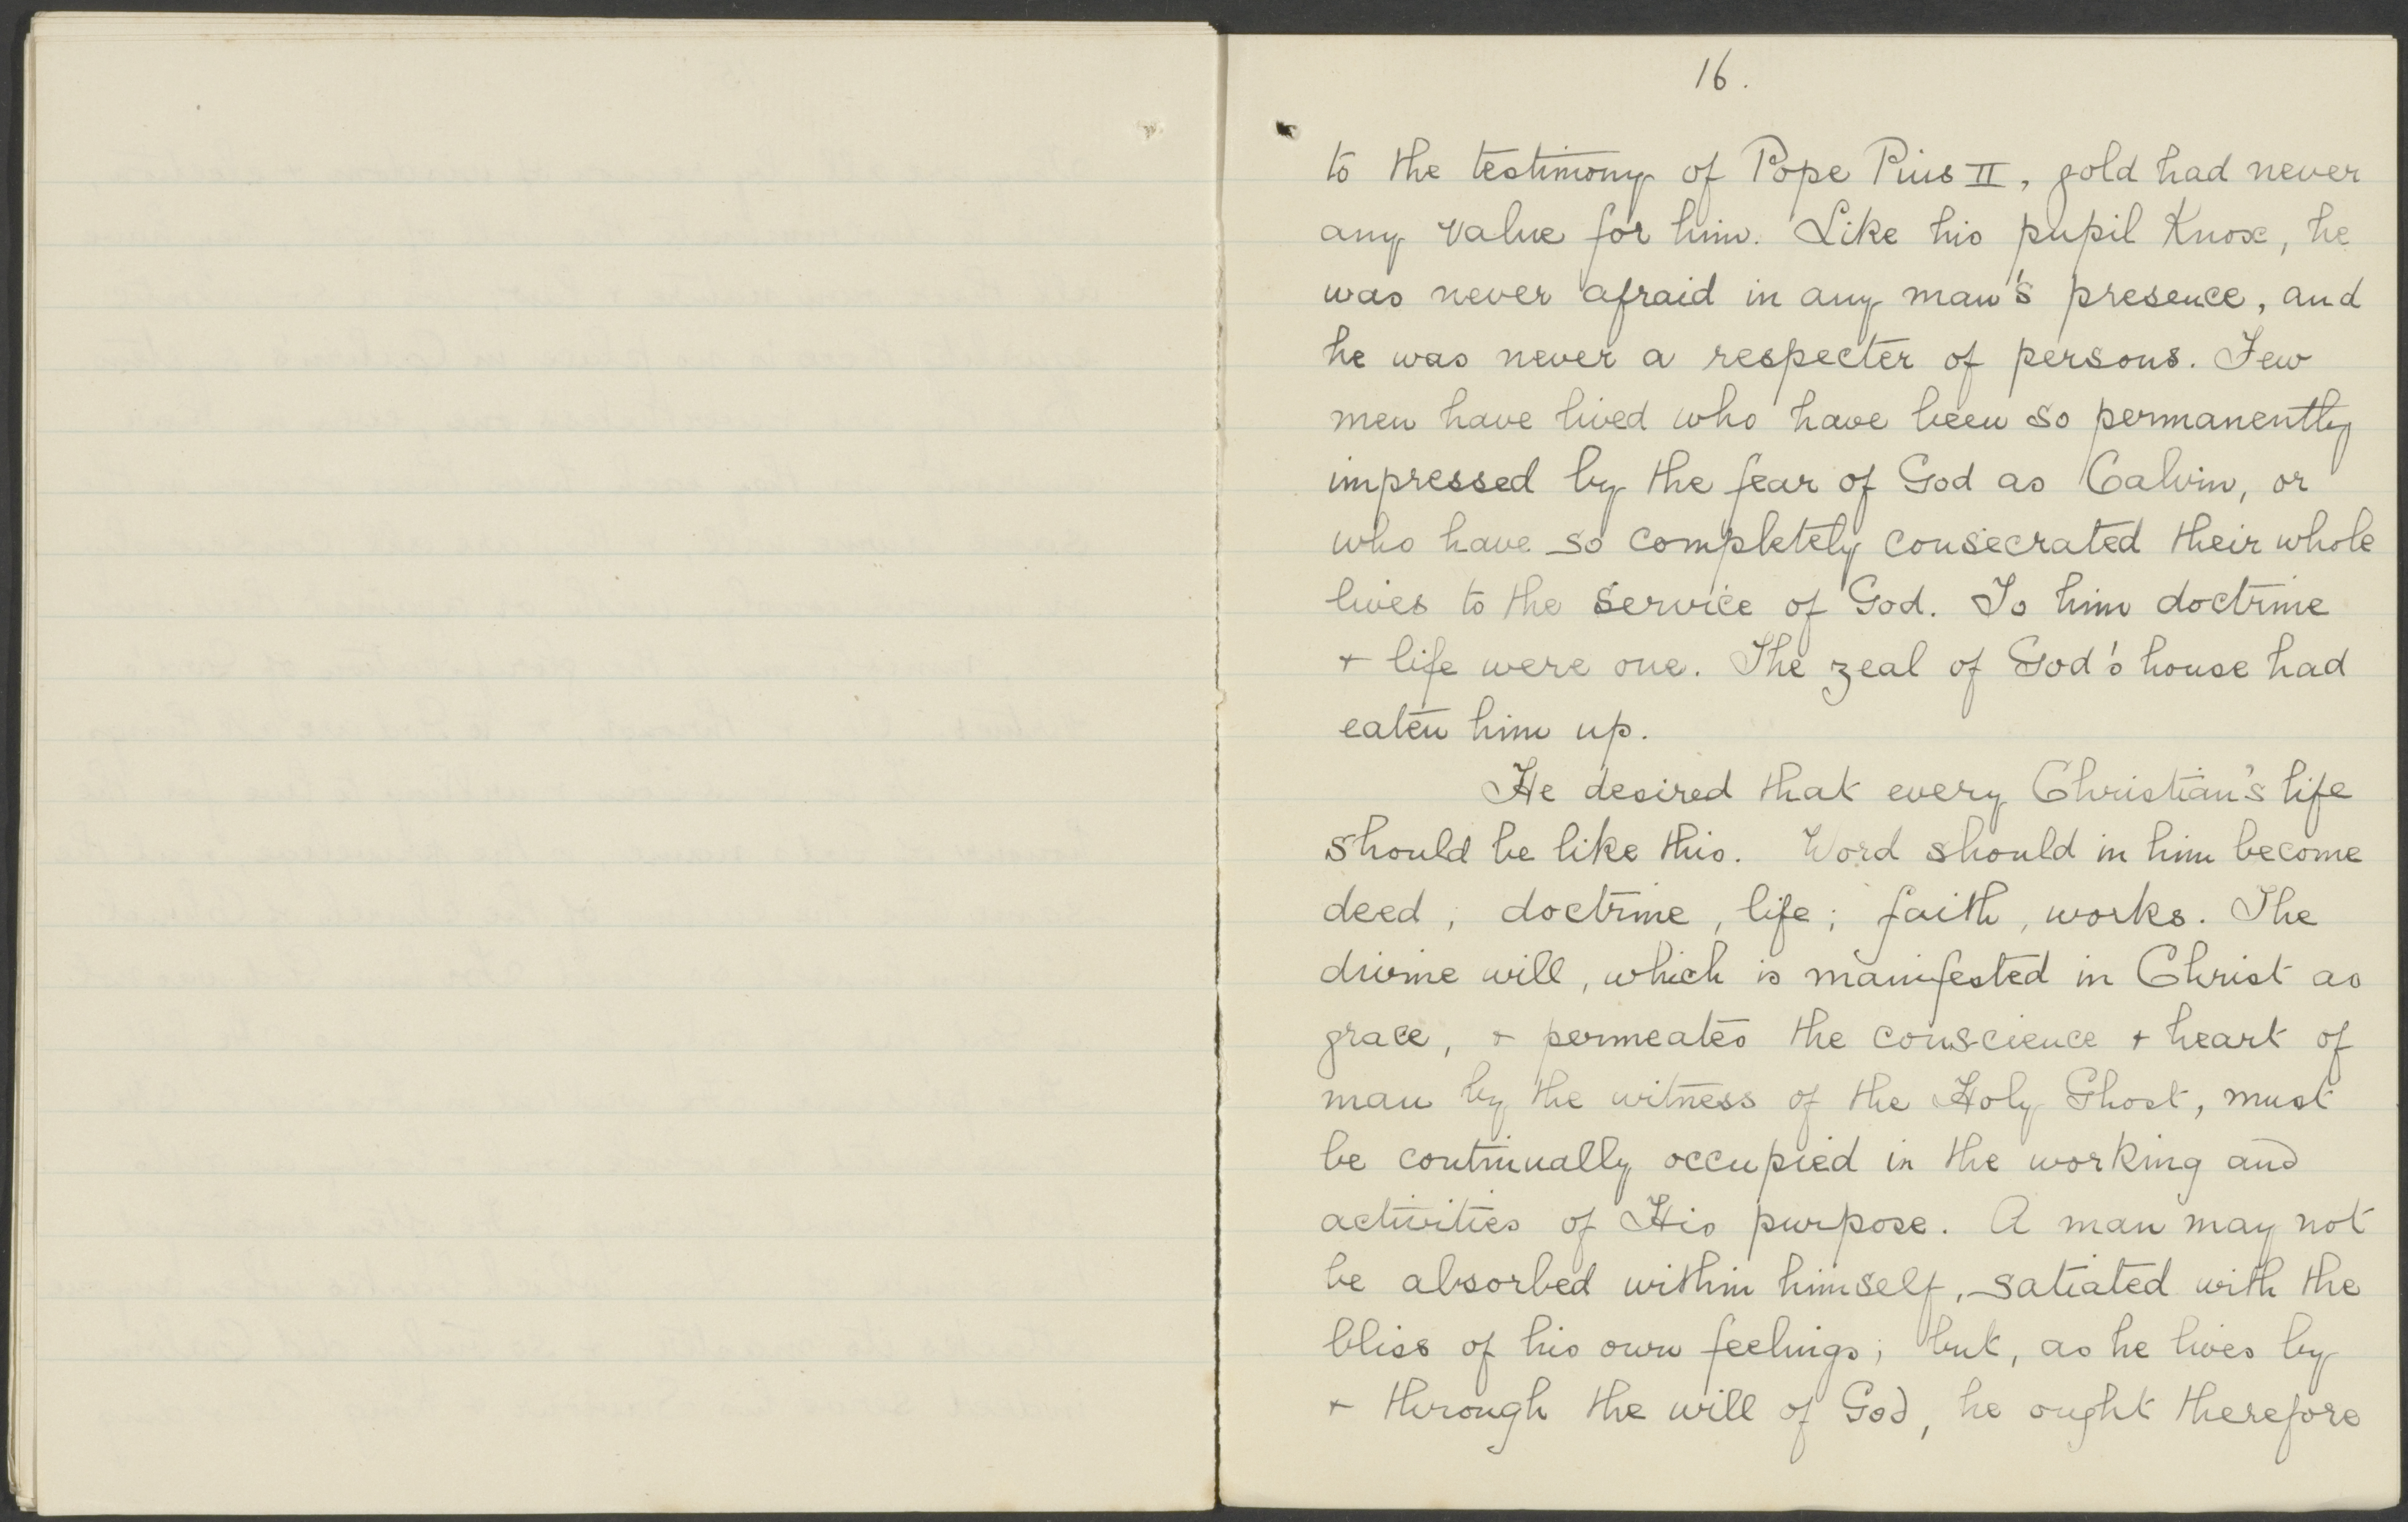 16.
to the testimony of Pope Pius II, gold had never
any value for him. Like his pupil Knox, he
was never afraid in any man's presence, and
he was never a respecter of persons. Few
men have lived who have been so permanently
impressed by the fear of God as Calvin, or
who have so completely consecrated their whole
lives to the service of God. To him doctrine
+ life were one. The zeal of God's house had
eaten him up.
He desired that every Christian's life
should be like this. Word should in him become
deed; doctrine, life; faith, works. The
divine will, which is manifested in Christ as
grace, + permeates the conscience + heart of
man by the witness of the Holy Ghost, must
be continually occupied in the working and
activities of His purpose. A man may not
be absorbed within himself, satiated with the
bliss of his own feelings; but, as he lives by
+ through the will of God, he ought therefore